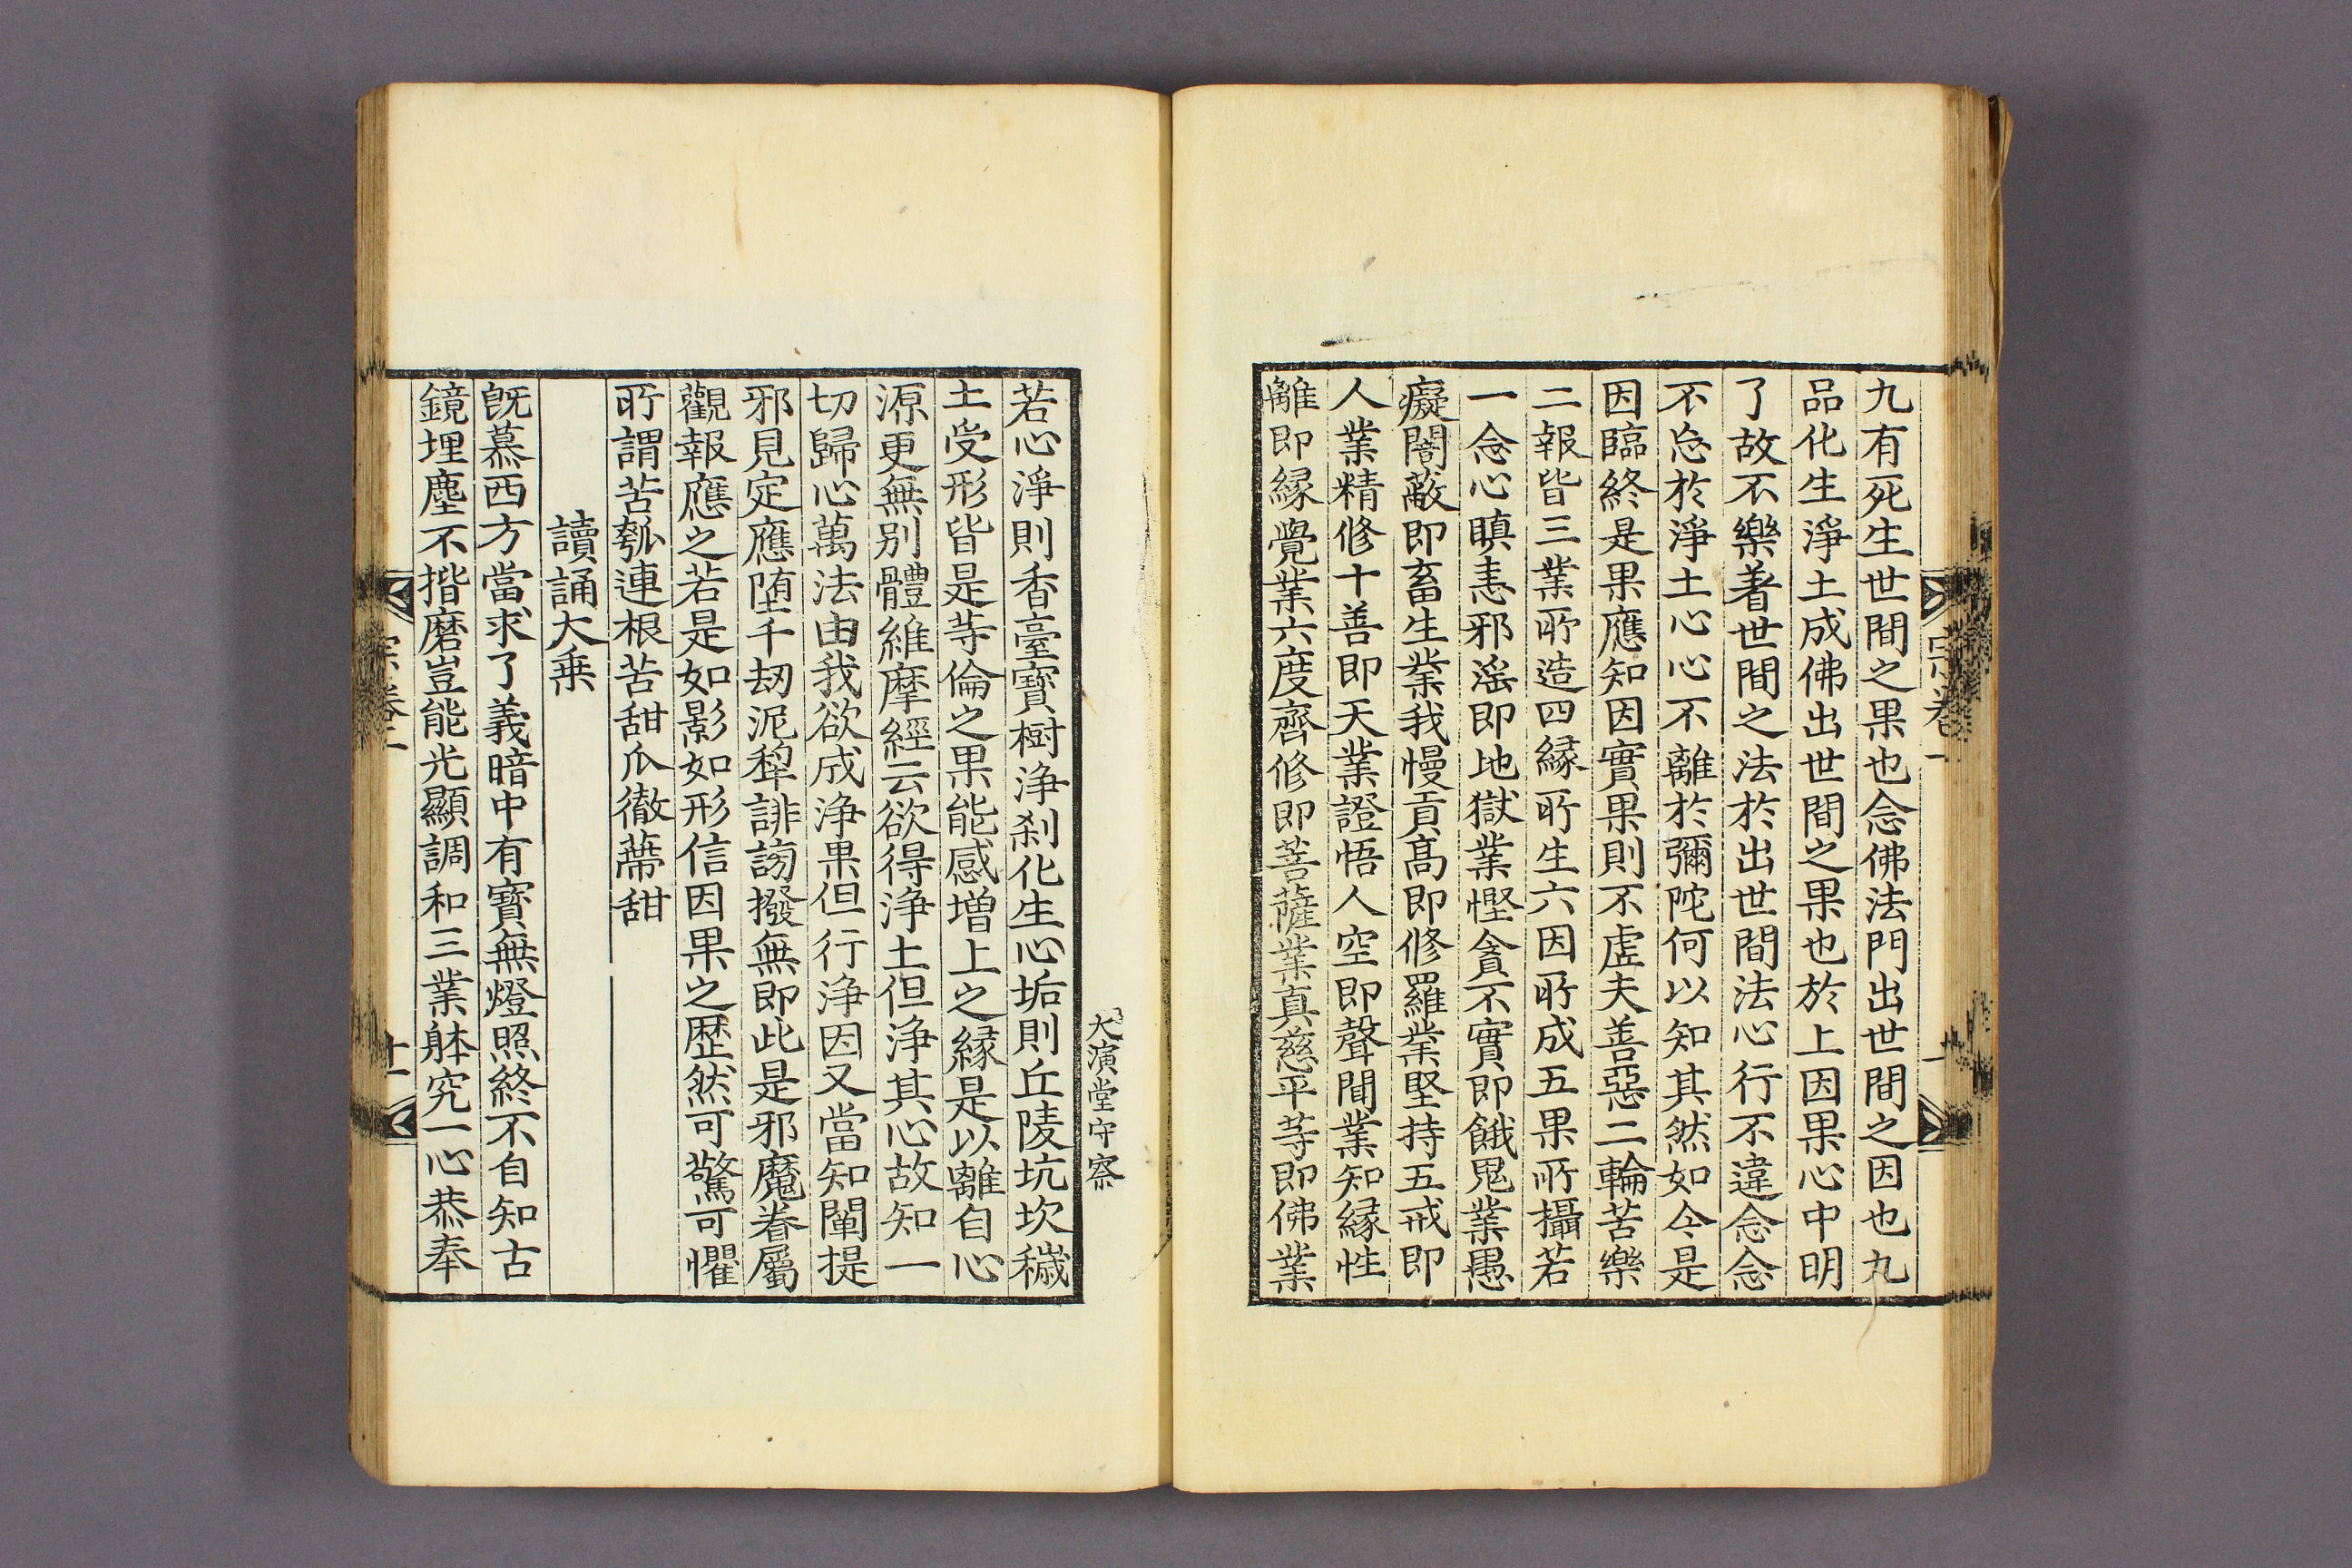 九有死生世間之果也念佛法門出世間之因也九
品化生淨土成佛出世間之果也於上因果心中明
了故不樂著世間之法於出世間法心行不違念念
不忘於淨土心心不離於彌陀何以知其然如今是
因臨終是果應知因實果則不虛夫善惡二輪苦樂
二報皆三業所造四緣所生六因所成五果所攝若
一念心瞋恚邪滛即地獄業慳貪不實即餓鬼業愚
癡闇蔽即畜生業我慢貢髙即修羅業堅持五戒即
人業精修十善即天業證悟人空即聲聞業知緣性
離即緣覺業六度齊修即菩薩業真慈平等即佛業
大演堂守察
若心淨則香臺寶樹淨刹化生心垢則丘陵坑坎穢
土受形皆是等倫之果能感增上之緣是以離自心
源更無別體維摩經云欲得淨土但淨其心故知一
切歸心萬法由我欲成淨果但行淨因又當知闡提
邪見定應墮千劫泥犂誹謗撥無即此是邪魔眷屬
觀報應之若是如影如形信因果之歷然可驚可懼
所謂苦瓠連根苦甜瓜徹蔕甜
讀誦大乗
旣慕西方當求了義暗中有寶無燈照終不自知古
鏡埋塵不揩磨豈能光顯調和三業躰究一心恭奉